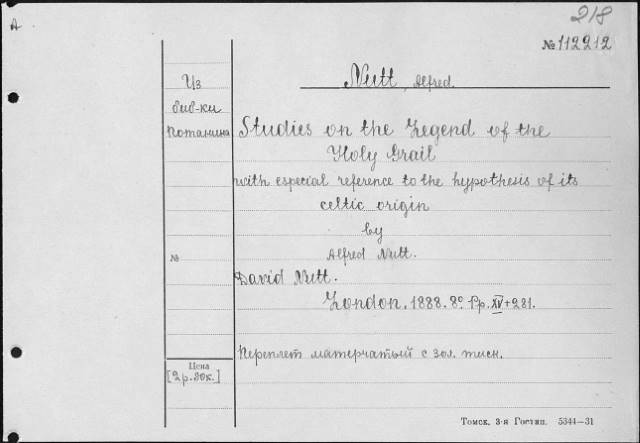 A
218
№ 112212
Из
биб-ки
Потанина
Nutt, Alfred.
Studies on the Legend of the
Holy Grail
with especial reference to the hypothesis of its
celtic origin
by
Alfred Nutt.
№
David Nutt.
London. 1888. 8º. Pp. XV+281.
Переплет матерчатый с зол. тисн.
Цена
[2р.30к.]
Томск, 3-я Гостип. 5344—31